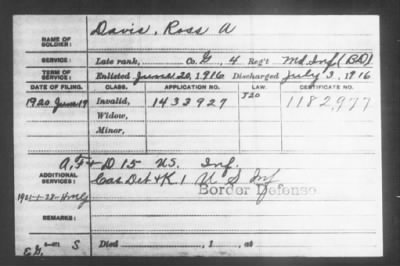 Davis, Ross A
NAME OF SOLDIER:
SERVICE: Late rank, Co. G, 4 Reg't Md. Inf (BD)
TERM OF SERVICE: Enlisted June 20, 1916 Discharged July 3, 1916
DATE OF FILING. CLASS. APPLICATION NO. LAW. CERTIFICATE NO.
1920 June 19 Invalid, 1433927 J20 1182,977
Widow,
Minor,
ADDITIONAL SERVICES:
D 15 U.S. Inf.
Cas Det + K 1 U S Inf
Border Defense
REMARKS:
S Died , 1 , at